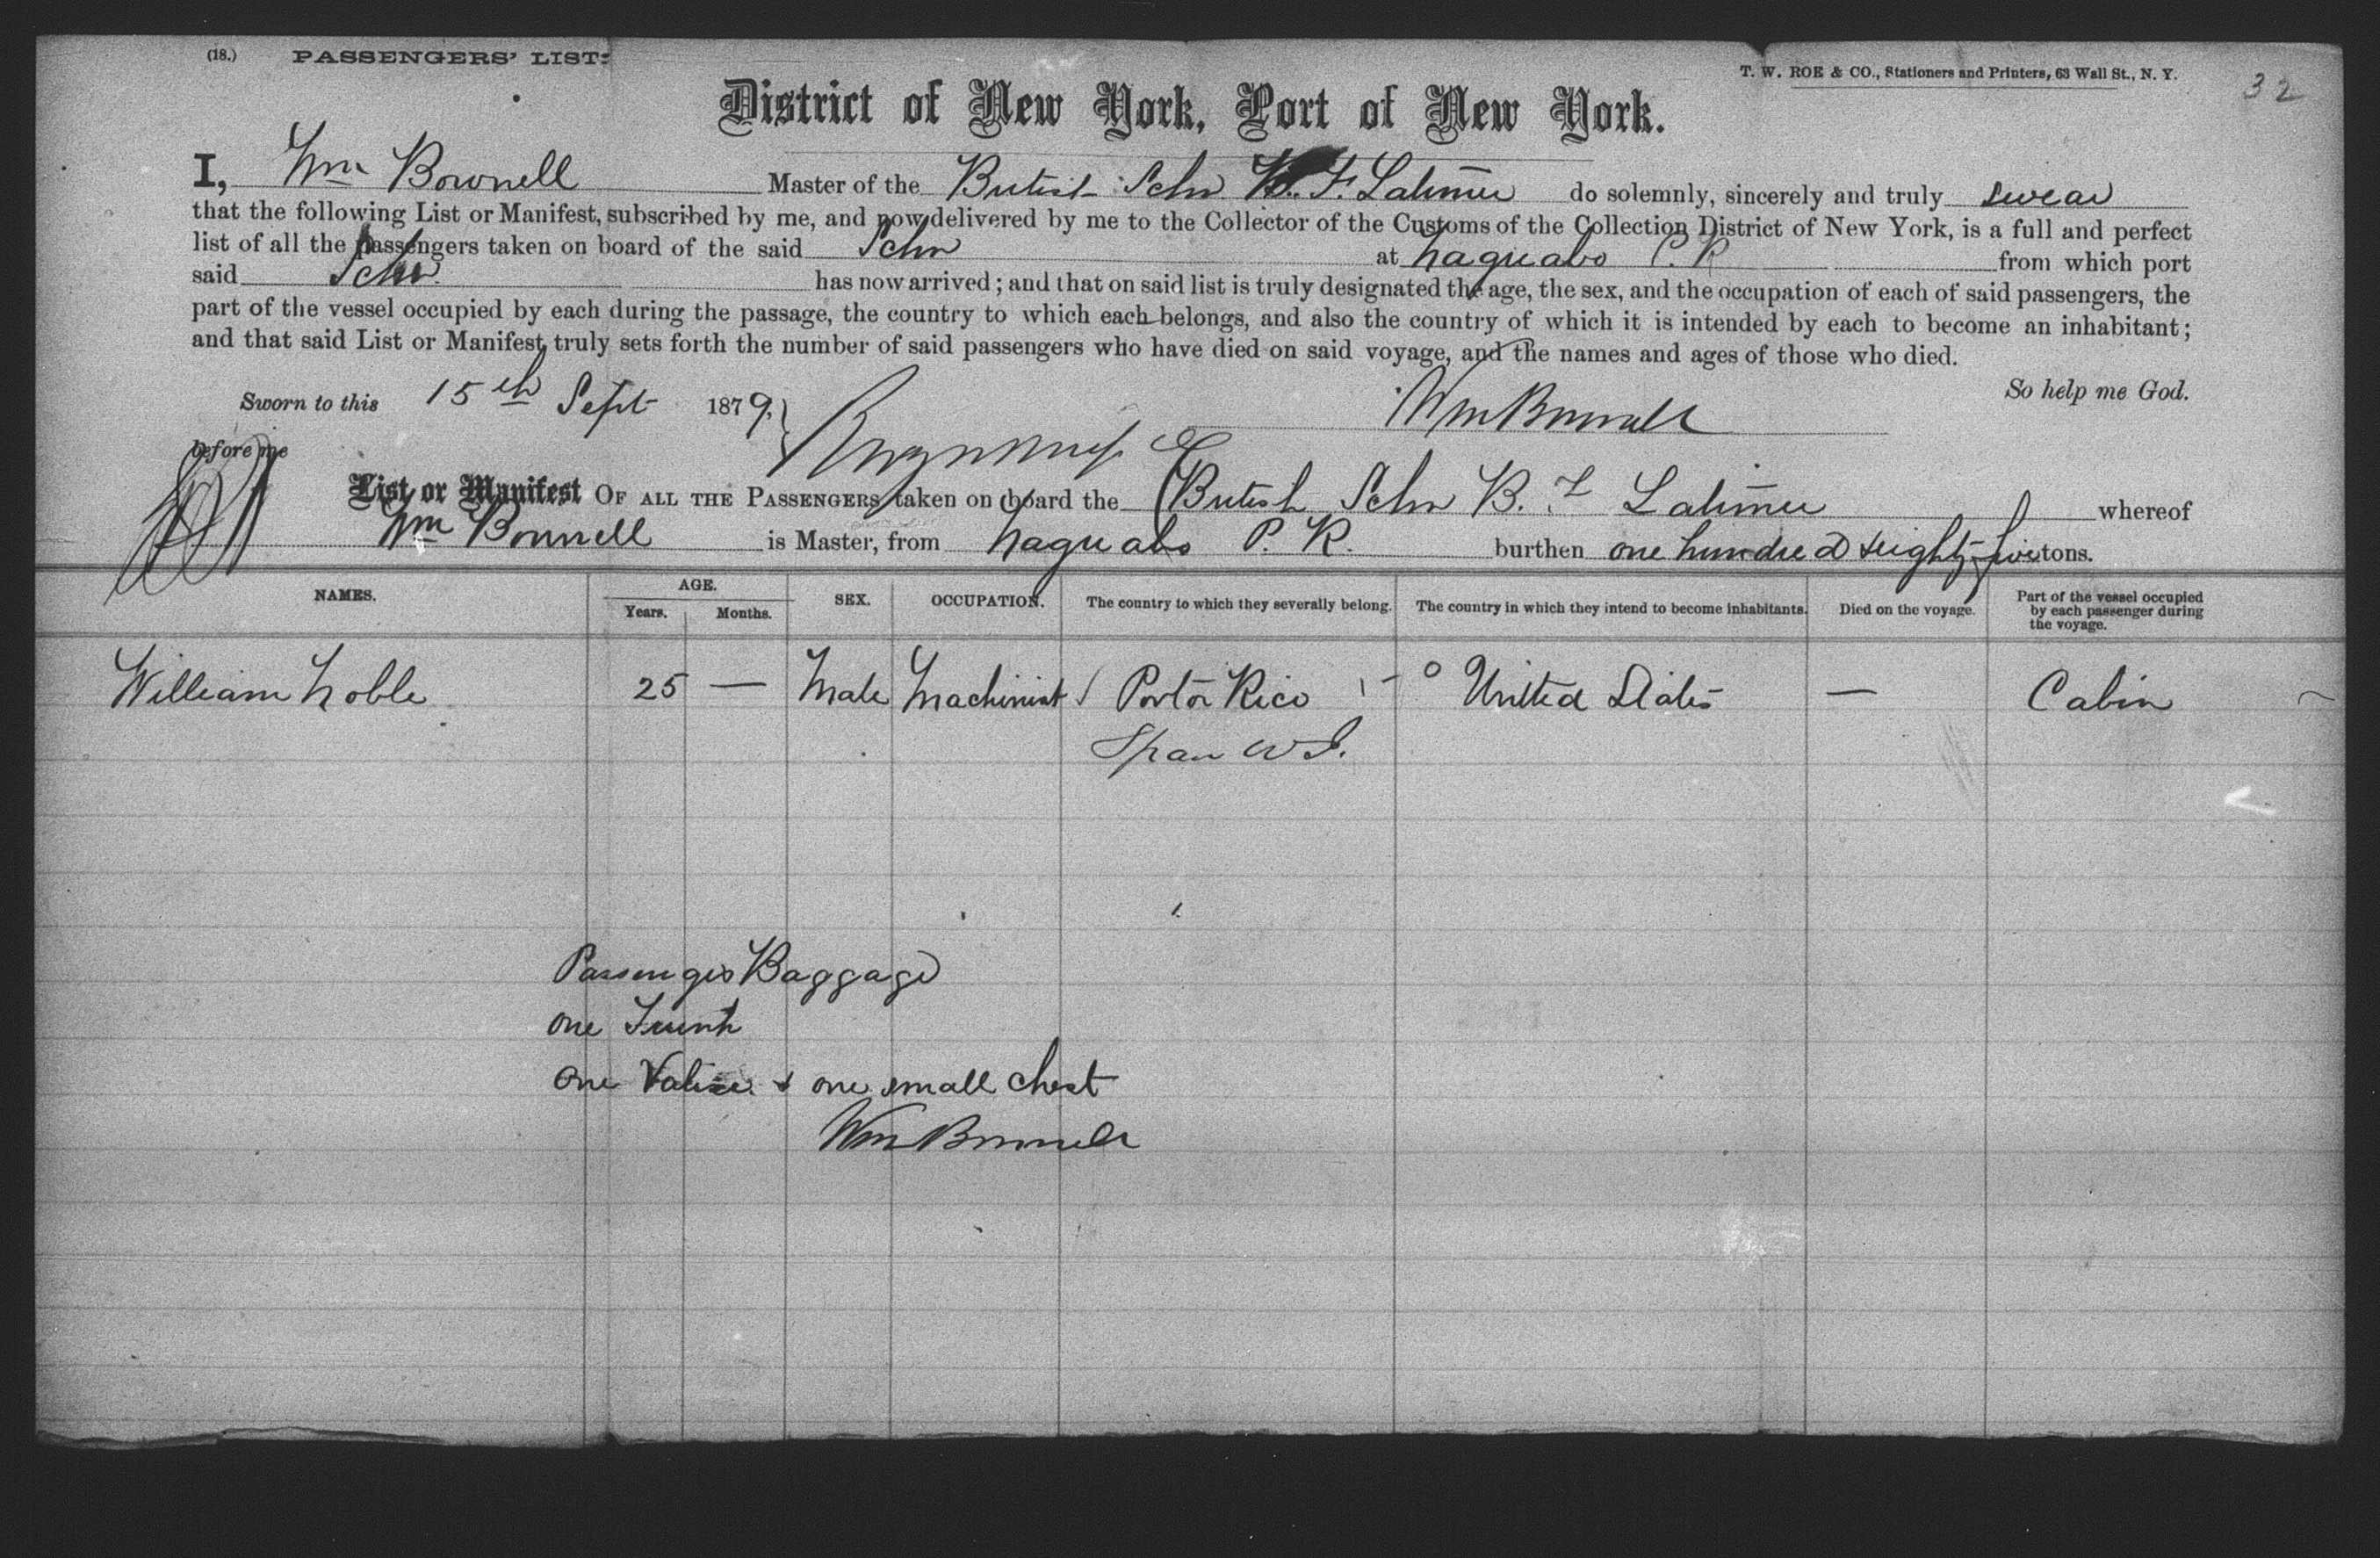 (18.) PASSENGERS' LIST.
T. W. ROE & CO., Stationers and Printers, 63 Wall St., N. Y.
32
District of New York, Port of New York.
I, Wm Bownell Master of the British Schr B. F. Latimer do solemnly, sincerely and truly swear
that the following List or Manifest, subscribed by me, and now delivered by me to the Collector of the Customs of the Collection District of New York, is a full and perfect
list of all the passengers taken on board of the said Schr at Naguabo P. R from which port
said Schr. has now arrived; and that on said list is truly designated the age, the sex, and the occupation of each of said passengers, the
part of the vessel occupied by each during the passage, the country to which each belongs, and also the country of which it is intended by each to become an inhabitant;
and that said List or Manifest truly sets forth the number of said passengers who have died on said voyage, and the names and ages of those who died.
So help me God.
Sworn to this 15th Sept 1879,
Wm Bonnell
before me
List or Manifest OF ALL THE PASSENGERS taken on board the British Schr B. F Latimer whereof
Wm Bonnell is Master, from Naguabo P. R. burthen one hundred & eighty five tons.
NAMES. AGE. Years. Months. SEX. OCCUPATION. The country to which they severally belong. The country in which they intend to become inhabitants. Died on the voyage. Part of the vessel occupied by each passenger during the voyage.
William Noble 25 — Male Machinist Porto Rico United States — Cabin
Span W I.
Passengers Baggage
one Trunk
one Valise & one small chest
Wm Bonnell